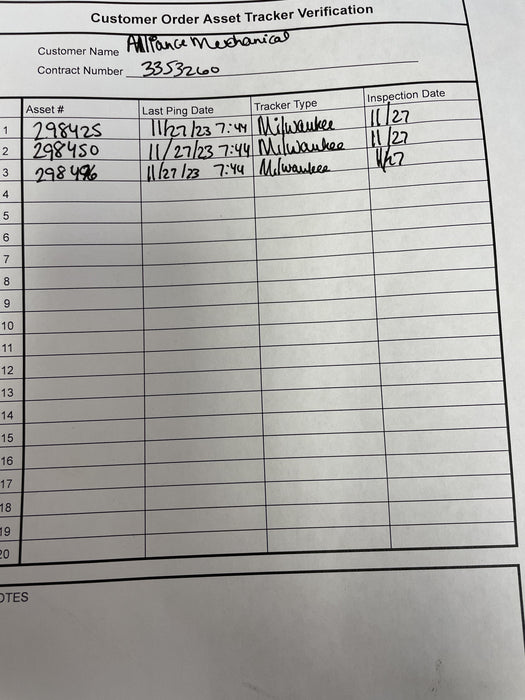 Customer Order Asset Tracker Verification
Customer Name Alliance Mechanical
Contract Number 3353260
Asset # Last Ping Date Tracker Type Inspection Date
1 298425 11/27/23 7:44 Milwaukee 11/27
2 298450 11/27/23 7:44 Milwaukee 11/27
3 298496 11/27/23 7:44 Milwaukee 11/27
4
5
6
7
8
9
10
11
12
13
14
15
16
17
18
19
20
OTES